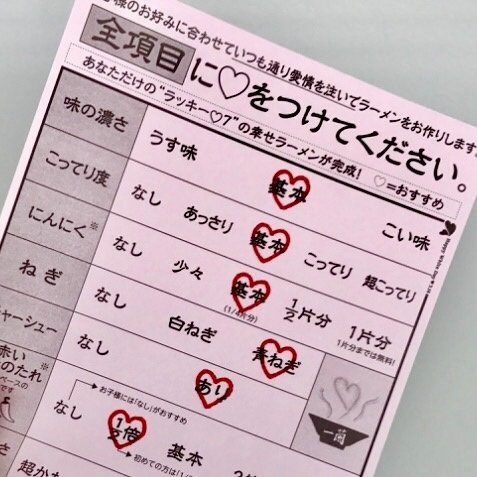 様のお好みに合わせていつも通り愛情を注いでラーメンをお作りします
全項目に♡をつけてください。
あなただけの“ラッキー♡7”の幸せラーメンが完成! ♡=おすすめ
味の濃さ うす味 基本 こい味
こってり度 なし あっさり 基本 こってり 超こってり
にんにく※ なし 少々 基本 1/2片分 1片分
(1/4片分) 1片分までは無料!
ねぎ なし 白ねぎ 青ねぎ
ャーシュー なし あり
赤い
のたれ※ なし 1/2倍 基本
ベースの
です
お子様には「なし」がおすすめ
初めての方は「1/
さ 超かた
一蘭